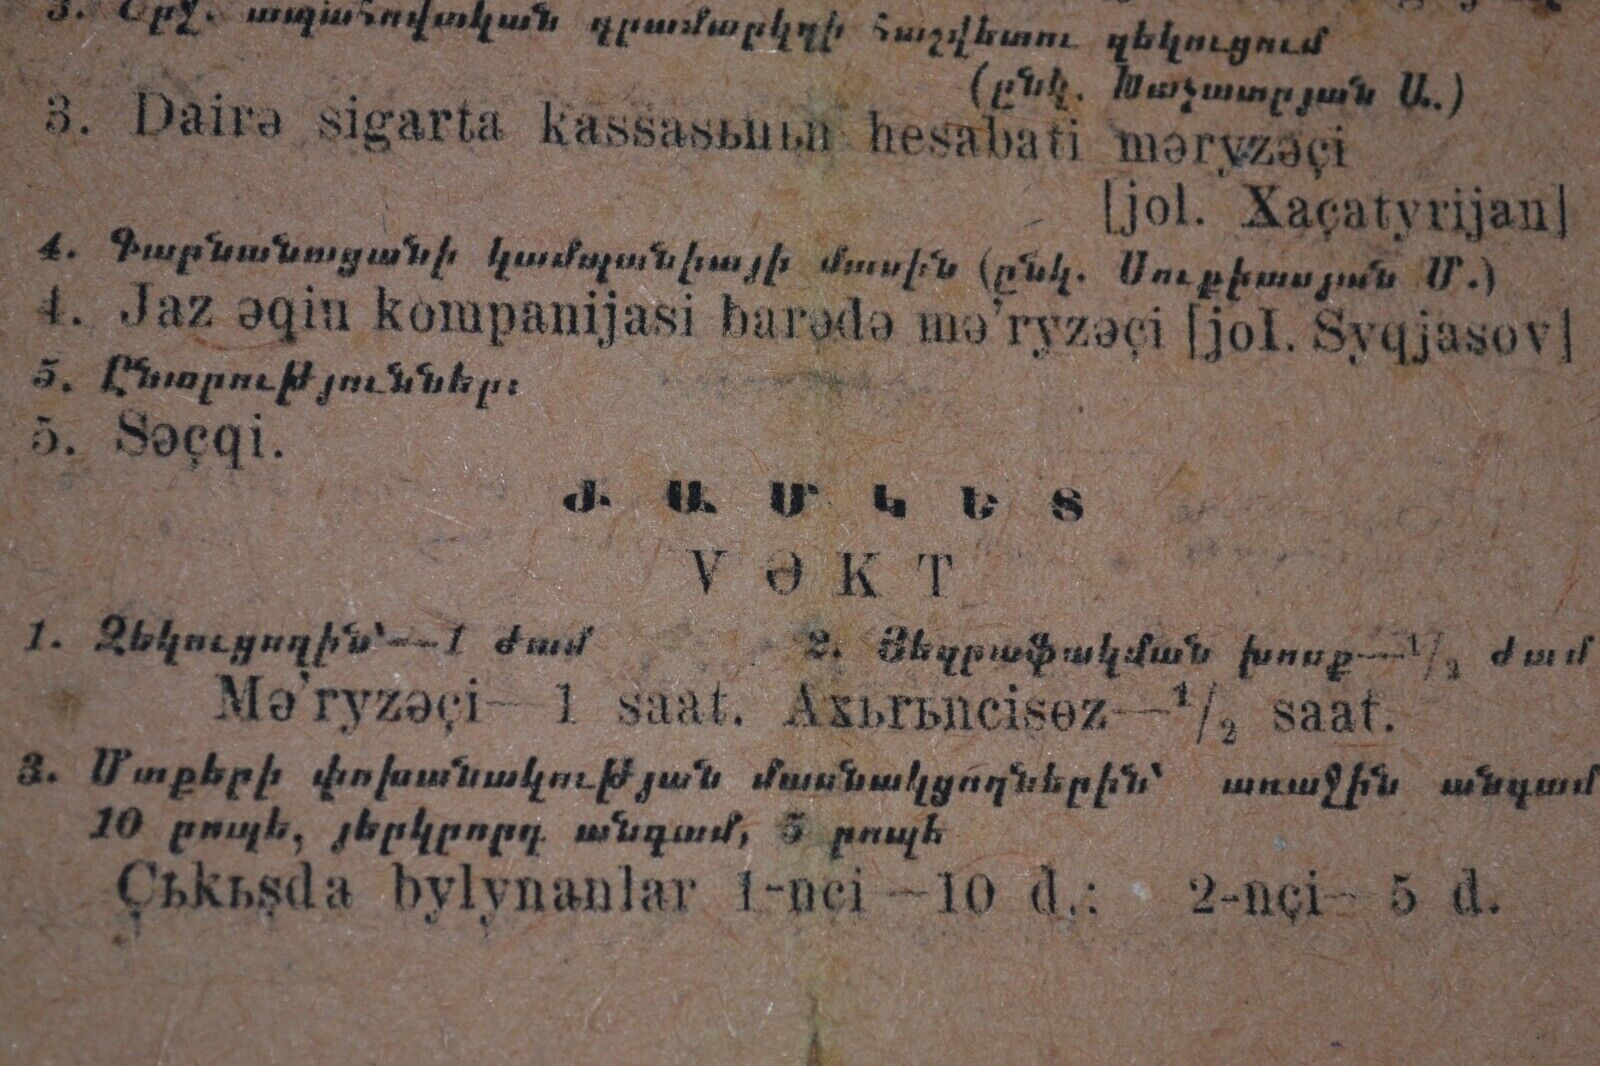 3. Շրջ. ապահովական դրամարկղի հաշվետու զեկուցում
(ընկ. Խաչատըրյան Ա.)
3. Dairə sigarta kassasьnьn hesabati məryzəçi
[jol. Xaçatyrijan]
4. Գարնանացանի կամպանիայի մասին (ընկ. Սուքիասյան Մ.)
4. Jaz əqin kompanijasi barədə mə'ryzəçi [jol. Syqjasov]
5. Ընտրություններ:
5. Səçqi.
ԺԱՄԿԵՏ
VƏKT
1. Զեկուցողին՝—1 ժամ 2. Յեզրափակման խոսք—1/2 ժամ
Mə'ryzəçi—1 saat. Axьrьncisөz—1/2 saat.
3. Մտքերի փոխանակության մասնակցողներին՝ առաջին անգամ
10 րոպե, յերկրորդ անգամ, 5 րոպե
Çьkьşda bylynanlar 1-nci—10 d.: 2-nçi—5 d.